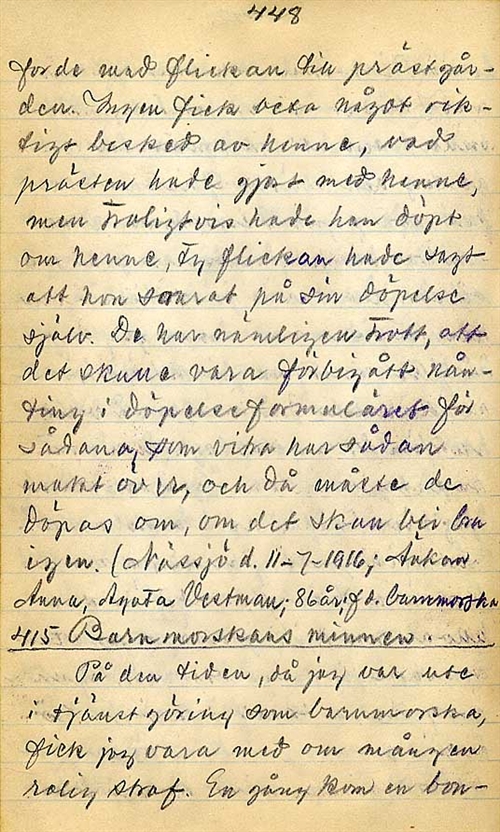 448
forde med flickan till prästgår-
den. Ingen fick veta något rik-
tigt besked av henne, vad
prästen hade gjort med henne,
men troligtvis hade han döpt
om henne, ty flickan hade sagt
att hon svarat på sin döpelse
själv. De har nämligen trott, att
det skulle vara förbigått nån-
ting i döpelseformuläret för
sådana, som vitra har sådan
makt över, och då måste de
döpas om, om det skall bli bra
igen. (Nässjö d. 11-7-1916; Änkan
Anna, Agata Vestman; 86 år; f.d. barnmorska
415 Barnmorskans minnen.
På den tiden, då jag var ute
i tjänstgöring som barnmorska,
fick jag vara med om mången
rolig straf. En gång kom en bon-